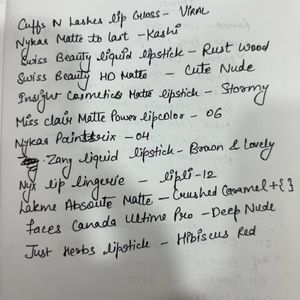 Cuffs N Lashes Lip Gloss - VIRAL
Nykaa Matte to last - Kashi
Swiss Beauty liquid lipstick - Rust Wood
Swiss Beauty HD Matte - Cute Nude
Insight Cosmetics Matte lipstick - Stormy
Miss clair Matte Power lipcolor - 06
Nykaa Paintstrix - 04
Zany liquid lipstick - Brown & Lovely
Nyx lip lingerie - lipli-12
Lakme Absolute Matte - Crushed Caramel + { }
Faces Canada Ultime Pro - Deep Nude
Just Herbs lipstick - Hibiscus Red